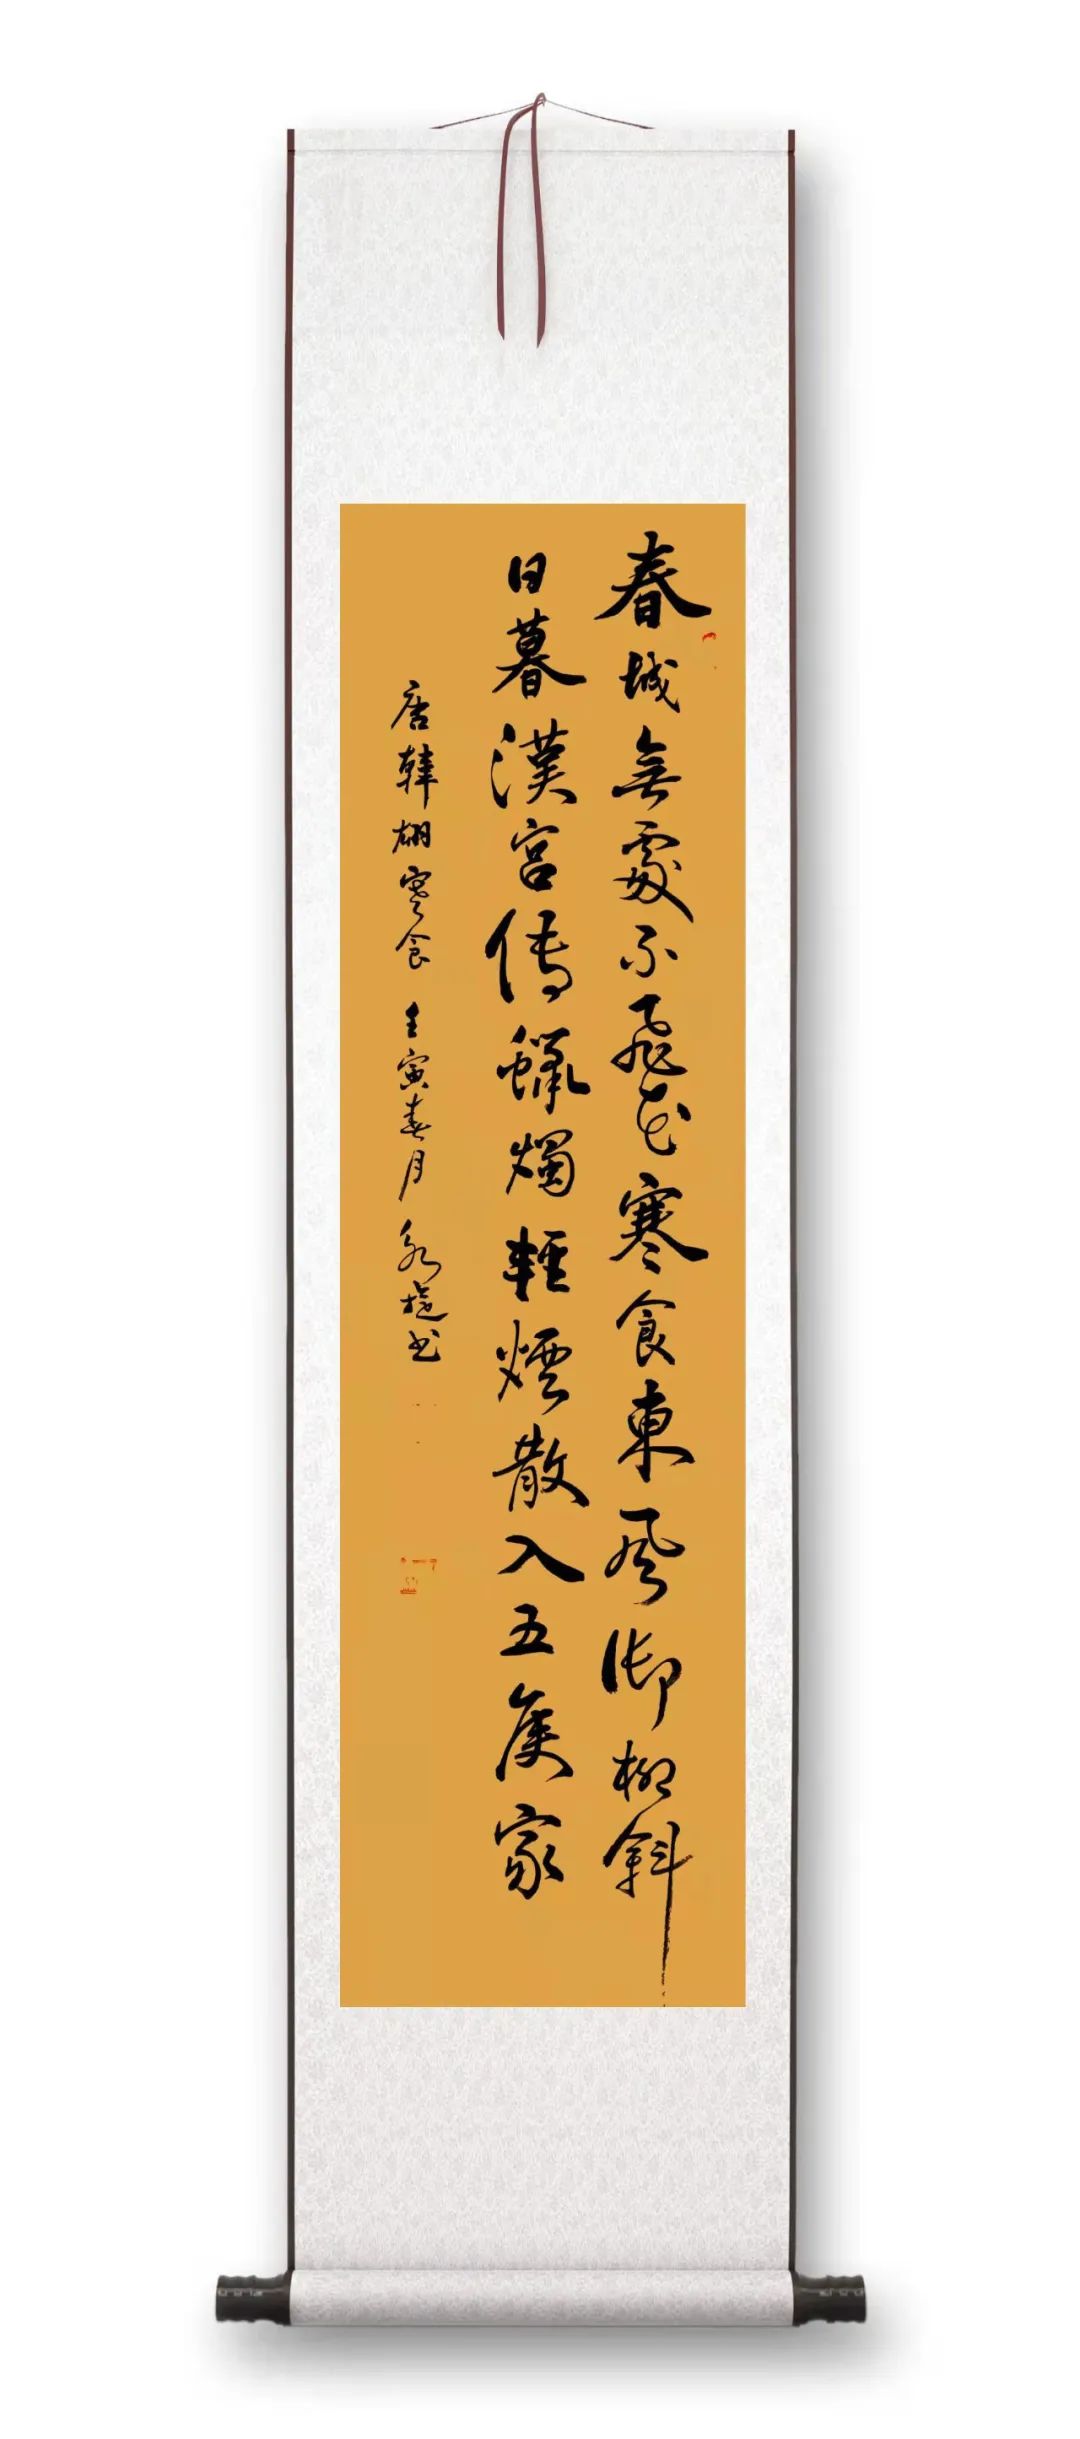 春城無處不飛花寒食東風御柳斜
日暮漢宮傳蠟燭輕煙散入五侯家
唐韓翃寒食 壬寅春月 永旋书